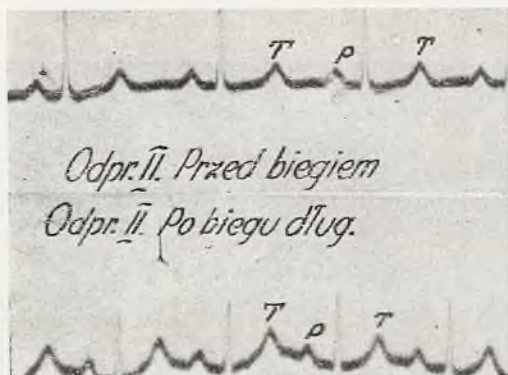 T P T
Odpr. II. Przed biegiem
Odpr. II. Po biegu dług.
T P T